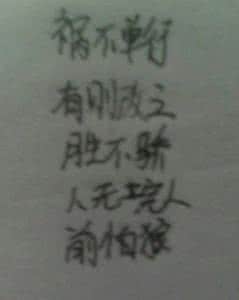 祸不单行
有则改之
胜不骄
人无完人
前怕狼